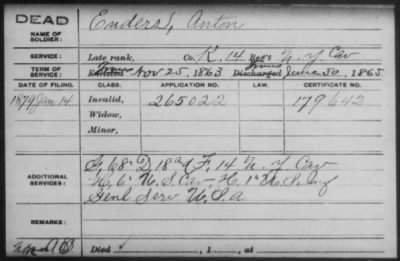 DEAD
NAME OF SOLDIER: Enders, Anton
SERVICE: Late rank, Co. K, 14 Reg't N.Y Cav
TERM OF SERVICE: Enlisted from Nov 25, 1863 Discharged June 30, 1865
DATE OF FILING. CLASS. APPLICATION NO. LAW. CERTIFICATE NO.
1879 Jan 14 Invalid, 265022 179642
Widow,
Minor,
G, 68" D 18" & F, 14 N.Y Cav
ADDITIONAL SERVICES: H, 6" U.S. Ca - H, 1" U.S. Inf
Genl Serv U.S.a
REMARKS:
Died , 1 , at